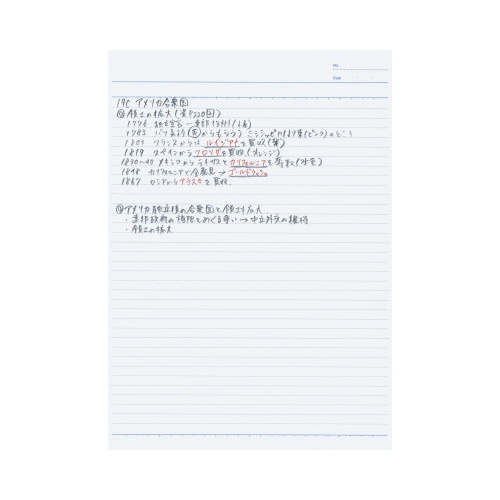 No.
Date
19C アメリカ合衆国
領土の拡大(P220図)
1776 独立宣言 東部13州
1783 パリ条約(英からもらう) ミシシッピ川より東(ピンク)のところ
1803 フランスからルイジアナを買収
1819 スペインからフロリダを買収(オレンジ)
1830~40 メキシコからテキサスとカリフォルニアを
1848 カリフォルニアで金発見→ゴールドラッシュ
1867 ロシアからアラスカを買収
アメリカ独立後の合衆国と領土拡大
・連邦政府の権限をめぐる争い→
・領土の拡大